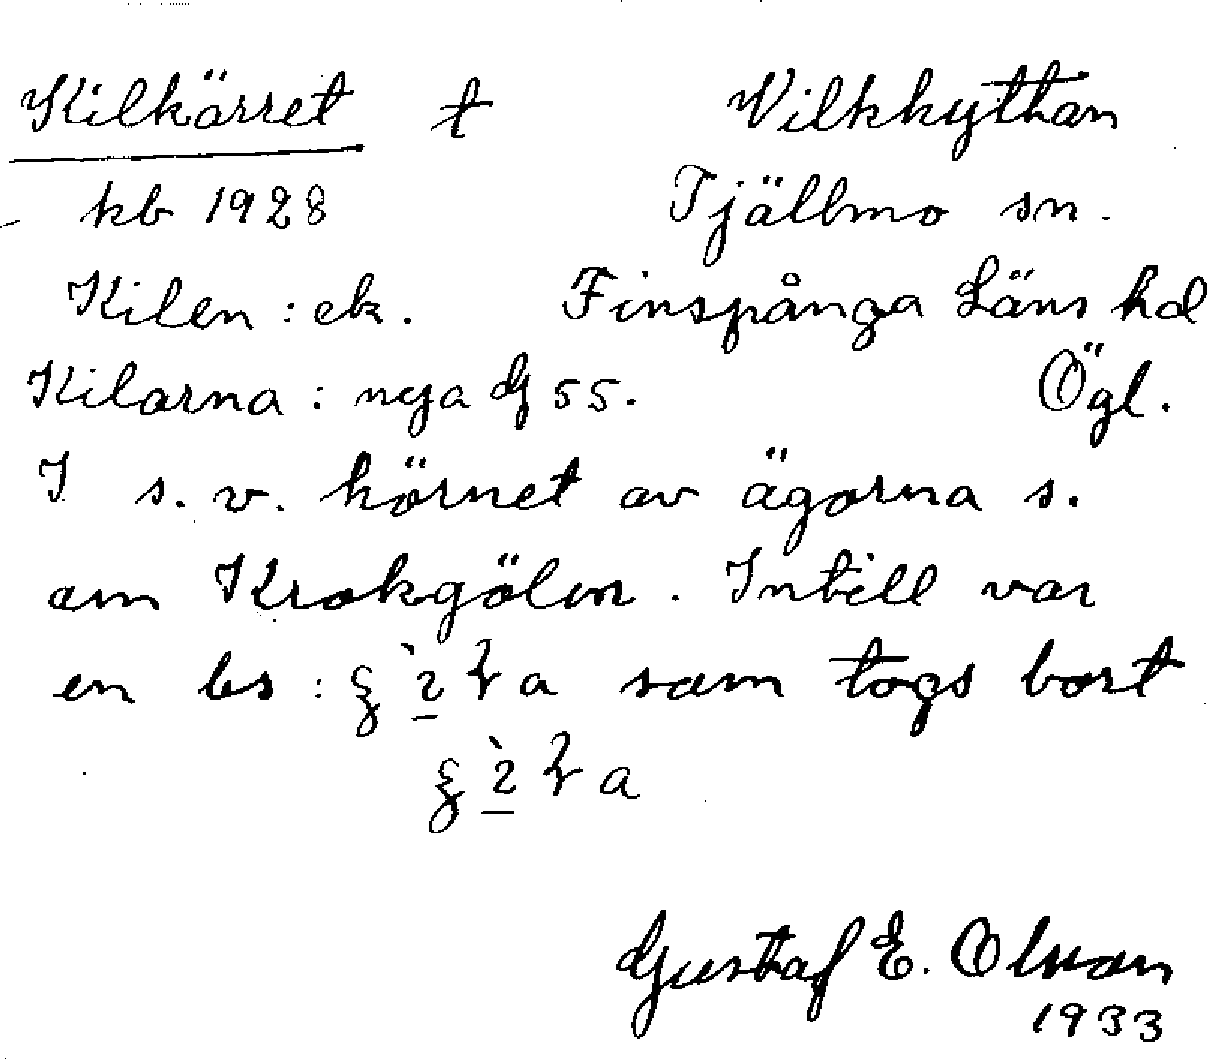 Kilkärret t Vilkhyttan
kb 1928 Tjällmo sn.
Kilen : ek. Finspånga Läns hd
Kilarna : nya 55. Ögl.
I s. v. hörnet av ägorna s.
om Krokgölen. Intill var
en bs : a som togs bort
a
Gustaf E. Olsson
1933